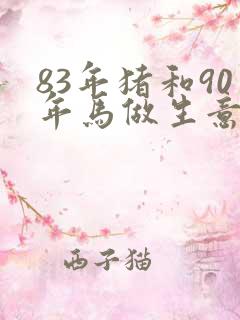 83年猪和90
年馬做生意
西子猫